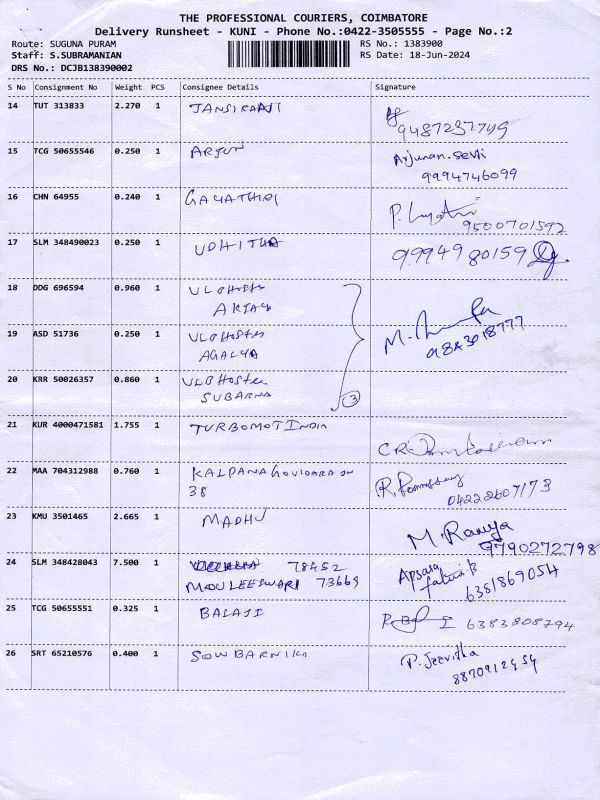 THE PROFESSIONAL COURIERS, COIMBATORE
Delivery Runsheet - KUNI - Phone No.:0422-3505555 - Page No.:2
Route: SUGUNA PURAM RS No.: 1383900
Staff: S.SUBRAMANIAN RS Date: 18-Jun-2024
DRS No.: DCJB138390002
S No Consignment No Weight PCS Consignee Details Signature
14 TUT 313833 2.270 1
9487237749
15 TCG 50655546 0.250 1 ARJUN Arjunan.selvi
9994746099
16 CHN 64955 0.240 1 GAYATHRI
9500701592
17 SLM 348490023 0.250 1 UDHITHA 9994980159
18 DDG 696594 0.960 1 VLB Hostel
19 ASD 51736 0.250 1 VLB Hostel 9843018777
AGALYA
20 KRR 50026357 0.860 1 VLB Hostel
SUBARNA 3
21 KUR 4000471581 1.755 1 TURBOMOT INDIA
22 MAA 704312988 0.760 1 KALPANA
38 04222607173
23 KMU 3501465 2.665 1 MADHU M. Ramya
9790272798
24 SLM 348428043 7.500 1 78452 Apsara
MOULEESWARI 73669 6381869054
25 TCG 50655551 0.325 1 BALAJI 6383808794
26 SRT 65210576 0.400 1 SOWBARNIKA P. Jeevitha
8870912454